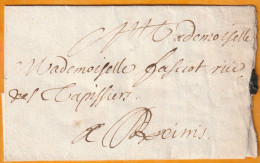 Mademoiselle
Mademoiselle fascot rue
des Tapissiers
a Reims